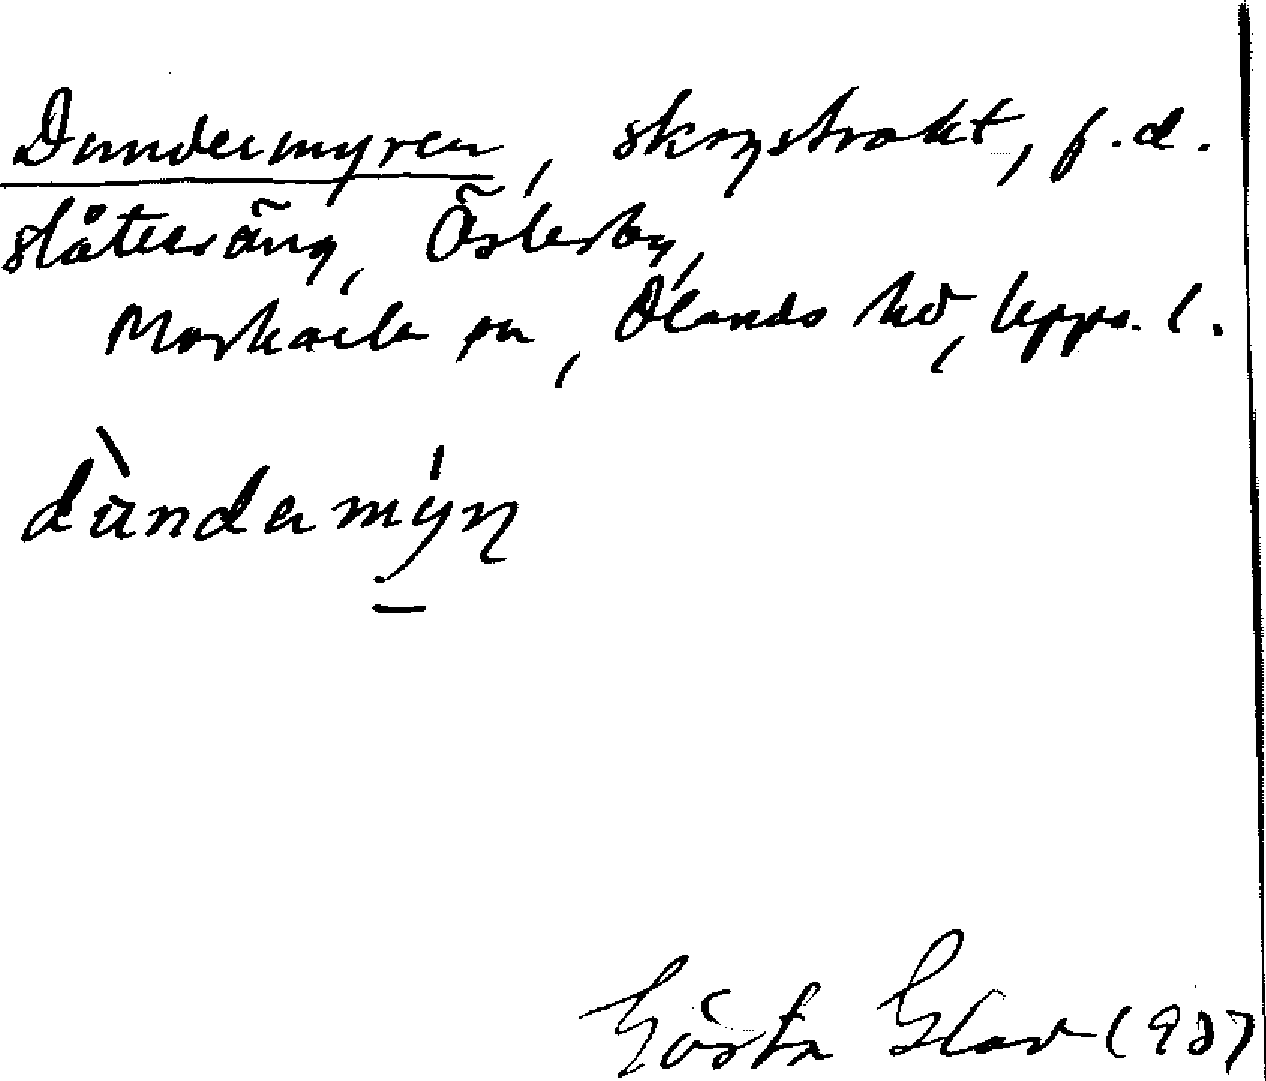 Dundermyren, skogstrakt, f.d.
slåtteräng, Österby,
Morkarla sn, Olands hd, Upps. l.
dùndamýn
Gösta 1937